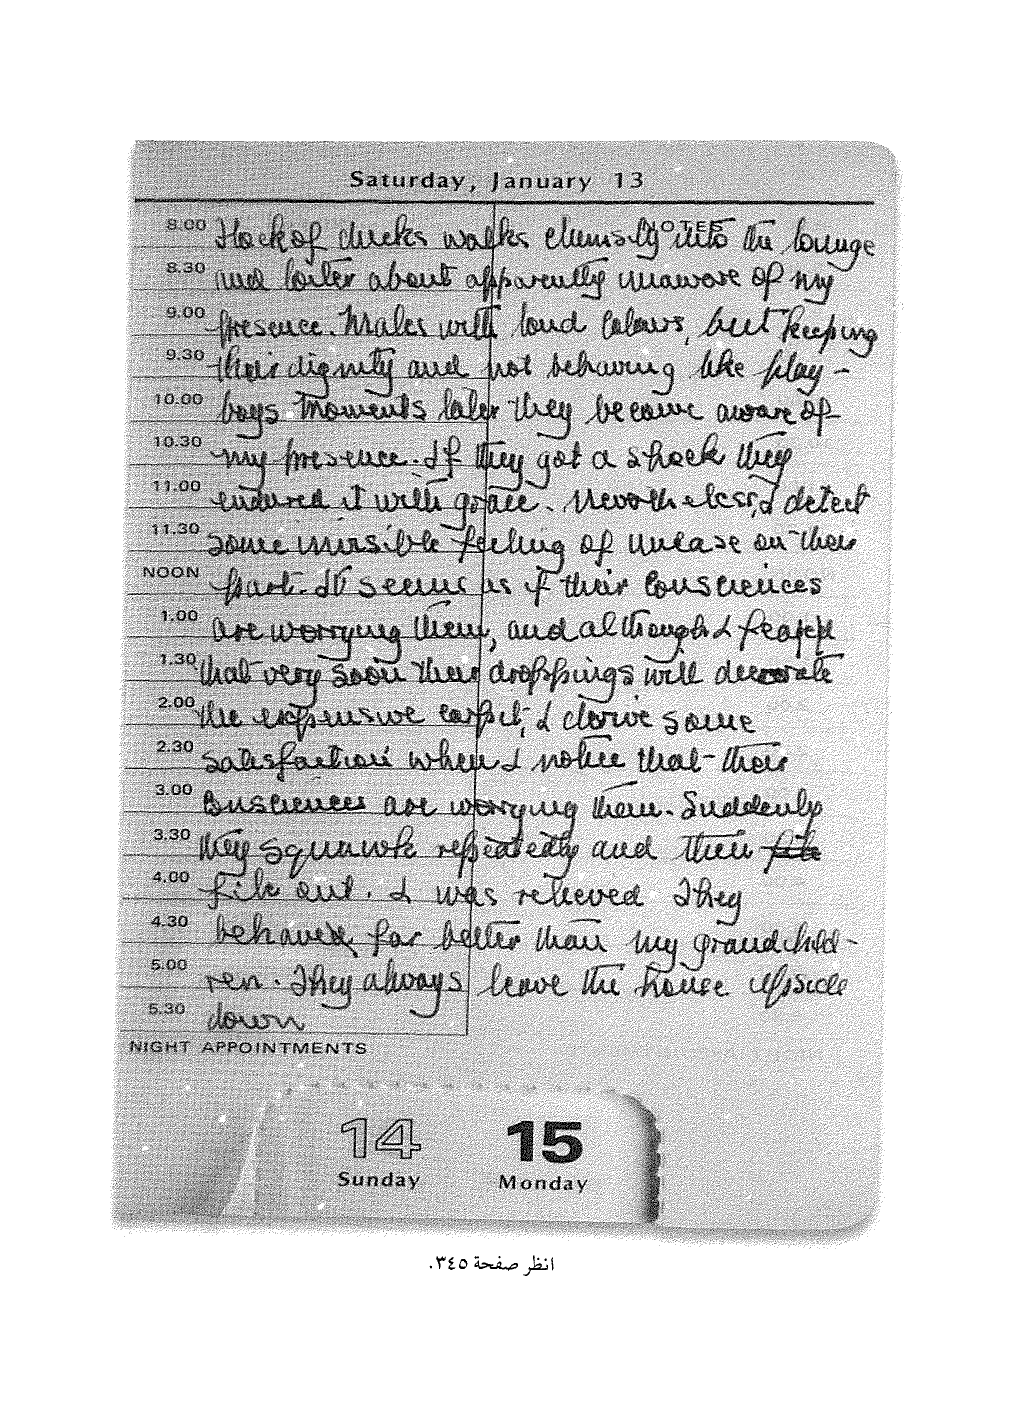 Saturday, January 13
NOTES
8.00 Flock of ducks walks clumsily into the lounge
8.30 and loiter about apparently unaware of my
9.00 presence. Males with loud colours, but keeping
9.30 their dignity and not behaving like play-
10.00 boys. Moments later they become aware of
10.30 my presence. If they got a shock they
11.00 endured it with grace. Nevertheless, I detect
11.30 some invisible feeling of unease on their
NOON part. It seems as if their consciences
1.00 are worrying them, and although I fear
1.30 that very soon their droppings will decorate
2.00 the expensive carpet, I derive some
2.30 satisfaction when I notice that their
3.00 consciences are worrying them. Suddenly
3.30 they squawk repeatedly and then file
4.00 file out. I was relieved. They
4.30 behaved far better than my grandchild-
5.00 ren. They always leave the house upside
5.30 down
NIGHT APPOINTMENTS
14 15
Sunday Monday
انظر صفحة ٣٤٥.